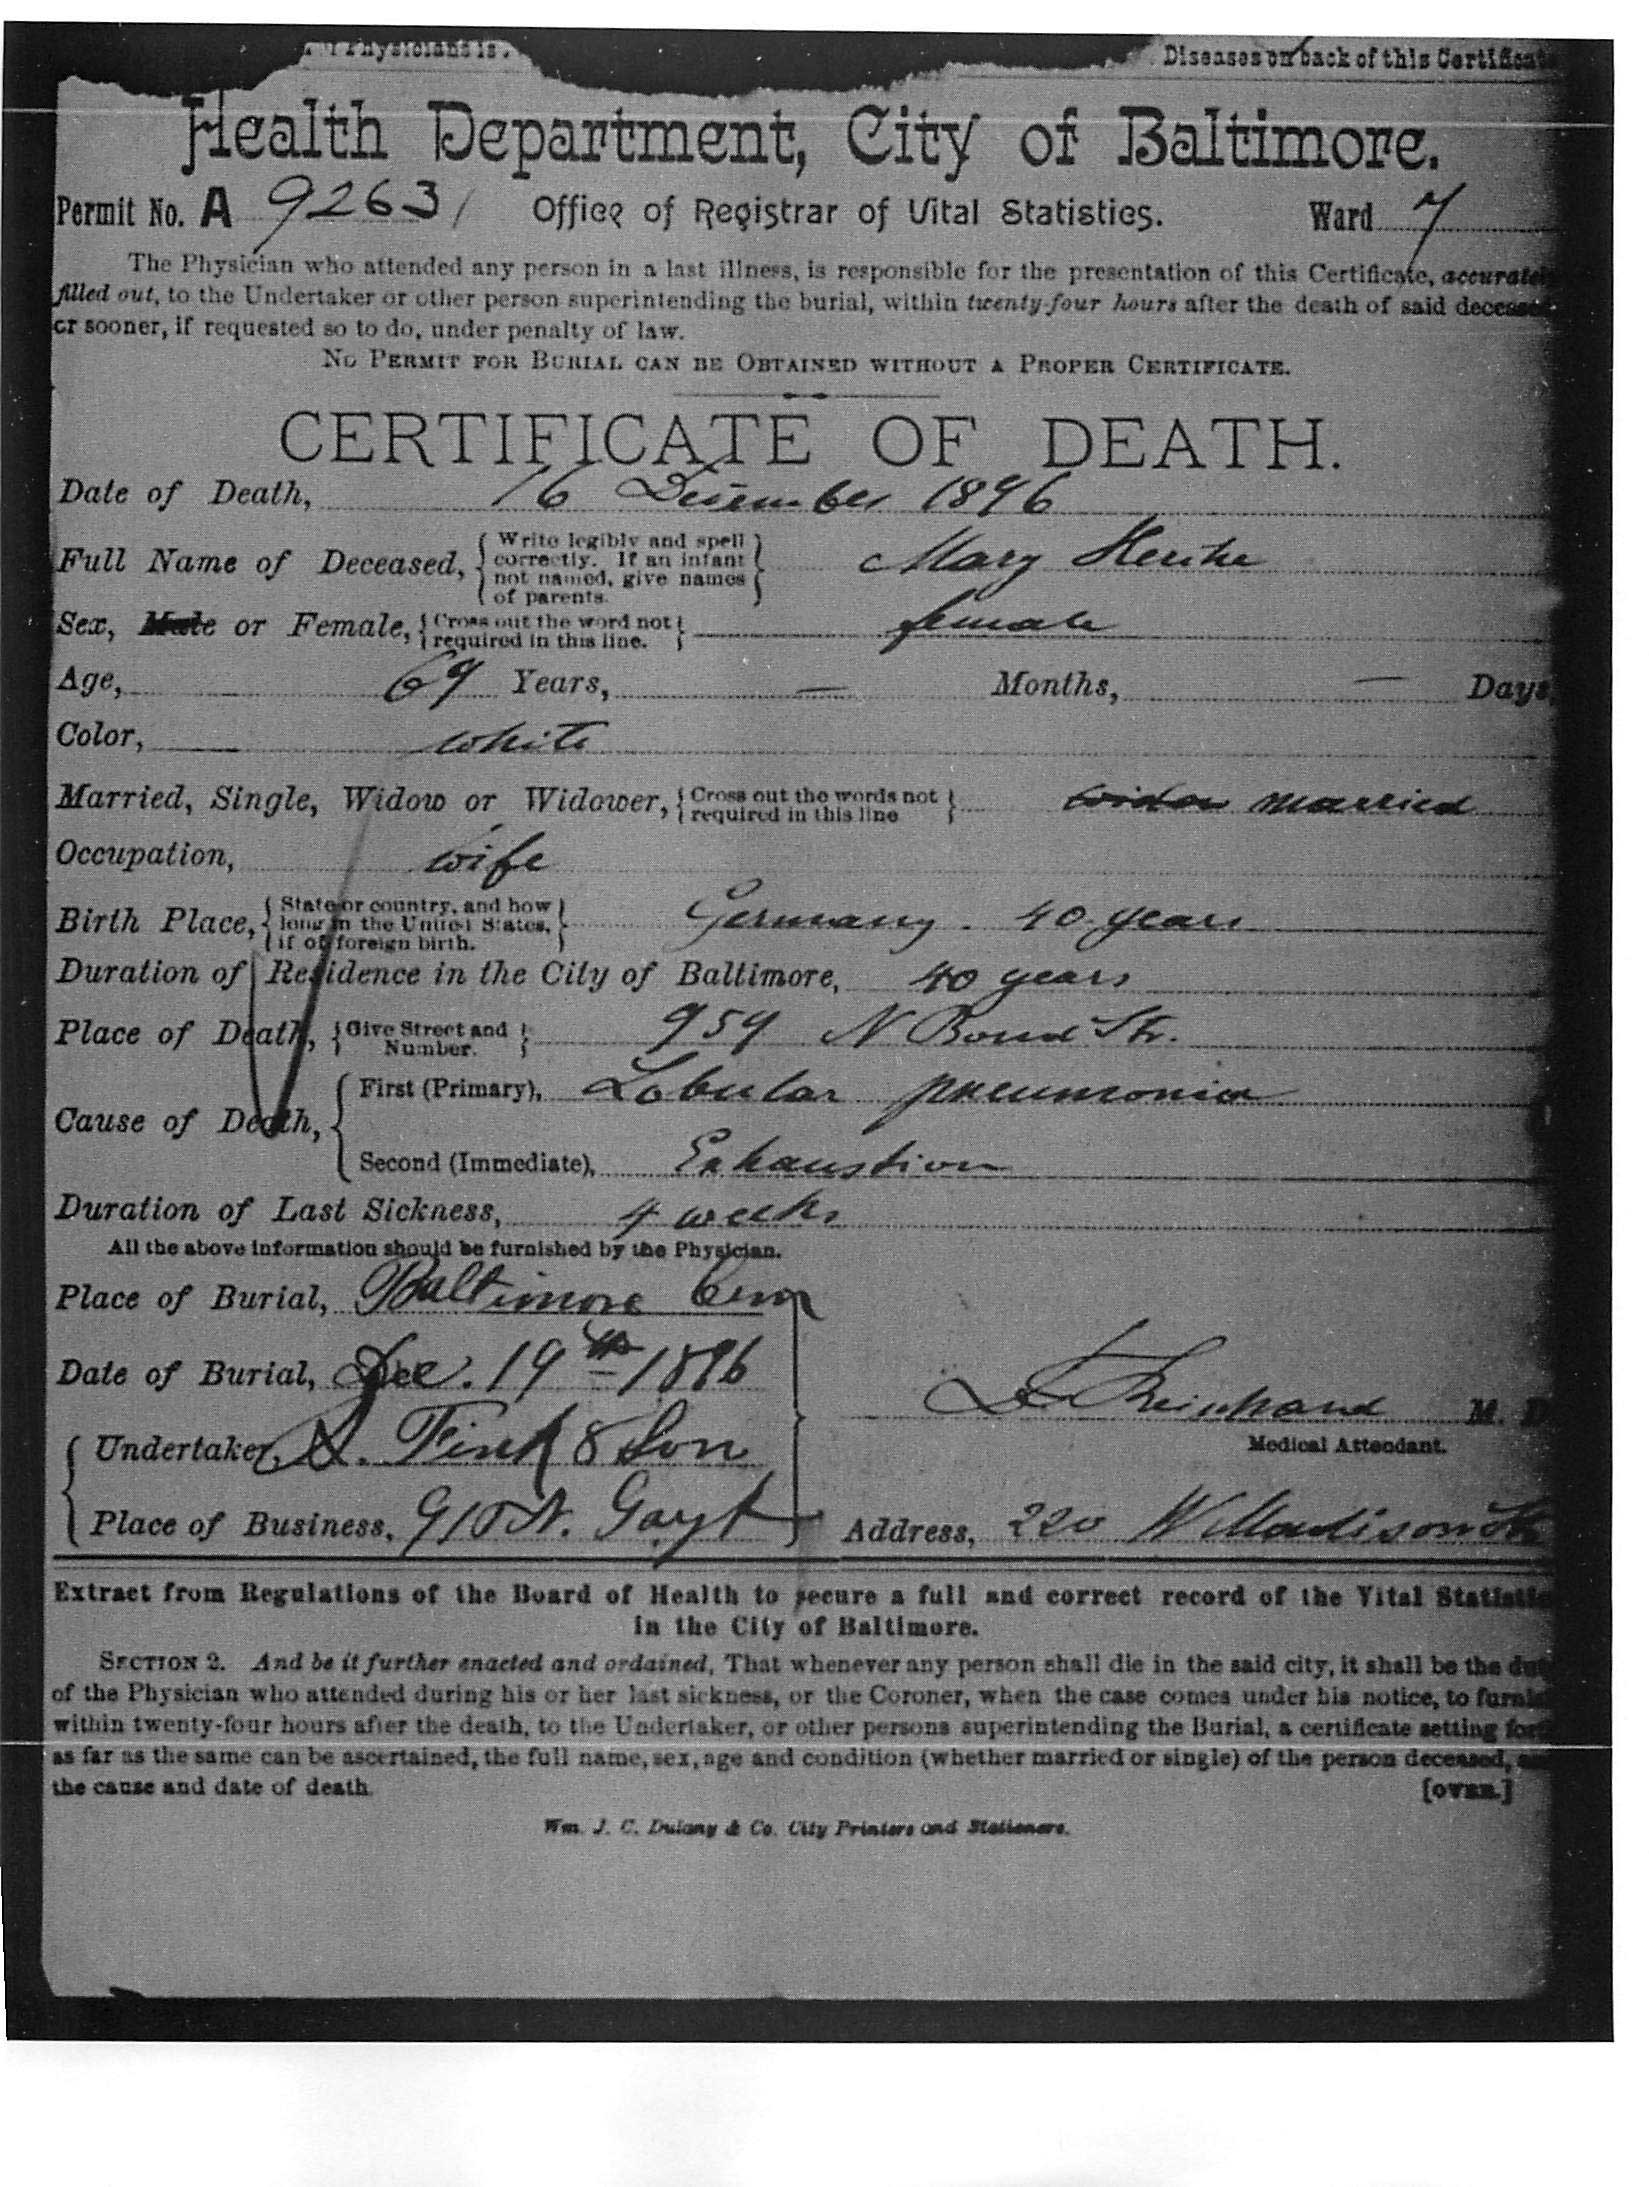 Physicians is
Diseases on back of this Certificate
Health Department, City of Baltimore.
Permit No. A 92631 Office of Registrar of Vital Statistics. Ward 7
The Physician who attended any person in a last illness, is responsible for the presentation of this Certificate, accurately
filled out, to the Undertaker or other person superintending the burial, within twenty-four hours after the death of said deceased
or sooner, if requested so to do, under penalty of law.
No Permit for Burial can be Obtained without a Proper Certificate.
CERTIFICATE OF DEATH.
Date of Death, 16 December 1896
Full Name of Deceased, { Write legibly and spell correctly. If an infant not named, give names of parents. } Mary
Sex, Male or Female, { Cross out the word not required in this line. } female
Age, 69 Years, — Months, — Days
Color, white
Married, Single, Widow or Widower, { Cross out the words not required in this line } widow married
Occupation, wife
Birth Place, { State or country, and how long in the United States, if of foreign birth. } Germany. 40 years
Duration of Residence in the City of Baltimore, 40 years
Place of Death, { Give Street and Number. } 959 N Bond Str.
Cause of Death, { First (Primary), Lobular pneumonia
Second (Immediate), Exhaustion
Duration of Last Sickness, 4 weeks
All the above information should be furnished by the Physician.
Place of Burial, Baltimore Cem
Date of Burial, Dec. 19th 1896
Reinhard M. D
Medical Attendant.
Undertaker, Fink & Son
Place of Business, 915 N. Gay St
Address, 220 W Madison St
Extract from Regulations of the Board of Health to secure a full and correct record of the Vital Statistics
in the City of Baltimore.
Section 2. And be it further enacted and ordained, That whenever any person shall die in the said city, it shall be the duty
of the Physician who attended during his or her last sickness, or the Coroner, when the case comes under his notice, to furnish
within twenty-four hours after the death, to the Undertaker, or other persons superintending the Burial, a certificate setting forth
as far as the same can be ascertained, the full name, sex, age and condition (whether married or single) of the person deceased, and
the cause and date of death. [over.]
Wm. J. C. Dulany & Co. City Printers and Stationers.